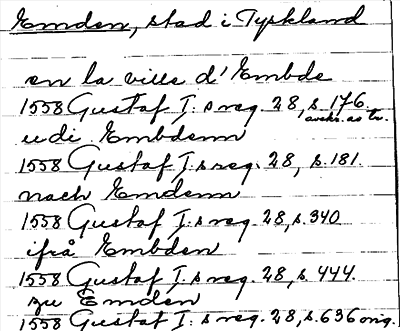 Emden, stad i Tyskland
en la ville d'Embde
1558 Gustaf I:s reg. 28, s. 176.
avskr. as tr.
udi Embdenn
1558 Gustaf I:s reg. 28, s. 181.
nach Emdenn
1558 Gustaf I:s reg. 28, s. 340
ifrå Embden
1558 Gustaf I:s reg. 28, s. 444.
zu Emden
1558 Gustaf I:s reg. 28, s. 636 orig.